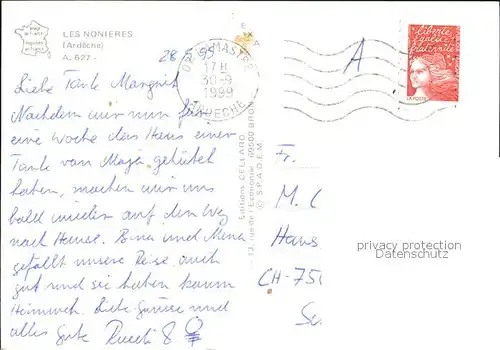 LES NONIERES
(Ardèche)
A. 627 -
Liebe Tante Margrit
Nachdem wir nun für
eine Woche das Haus einer
Tante von Maja gehütet
haben, machen wir uns
bald wieder auf den Weg
nach Hause. und
gefällt unsere Reise auch
gut und sie haben kaum
Heimweh. Liebe Grüsse und
alles Gute Ruedi &
17H
30-9
1999
ARDECHE
Editions CELLARD
13, rue de l'Economie 69500 BRON
© S.P.A.D.E.M.
A
Liberté
égalité
fraternité
LA POSTE
Fr.
M. (
Hans
CH-750
privacy protection
Datenschutz